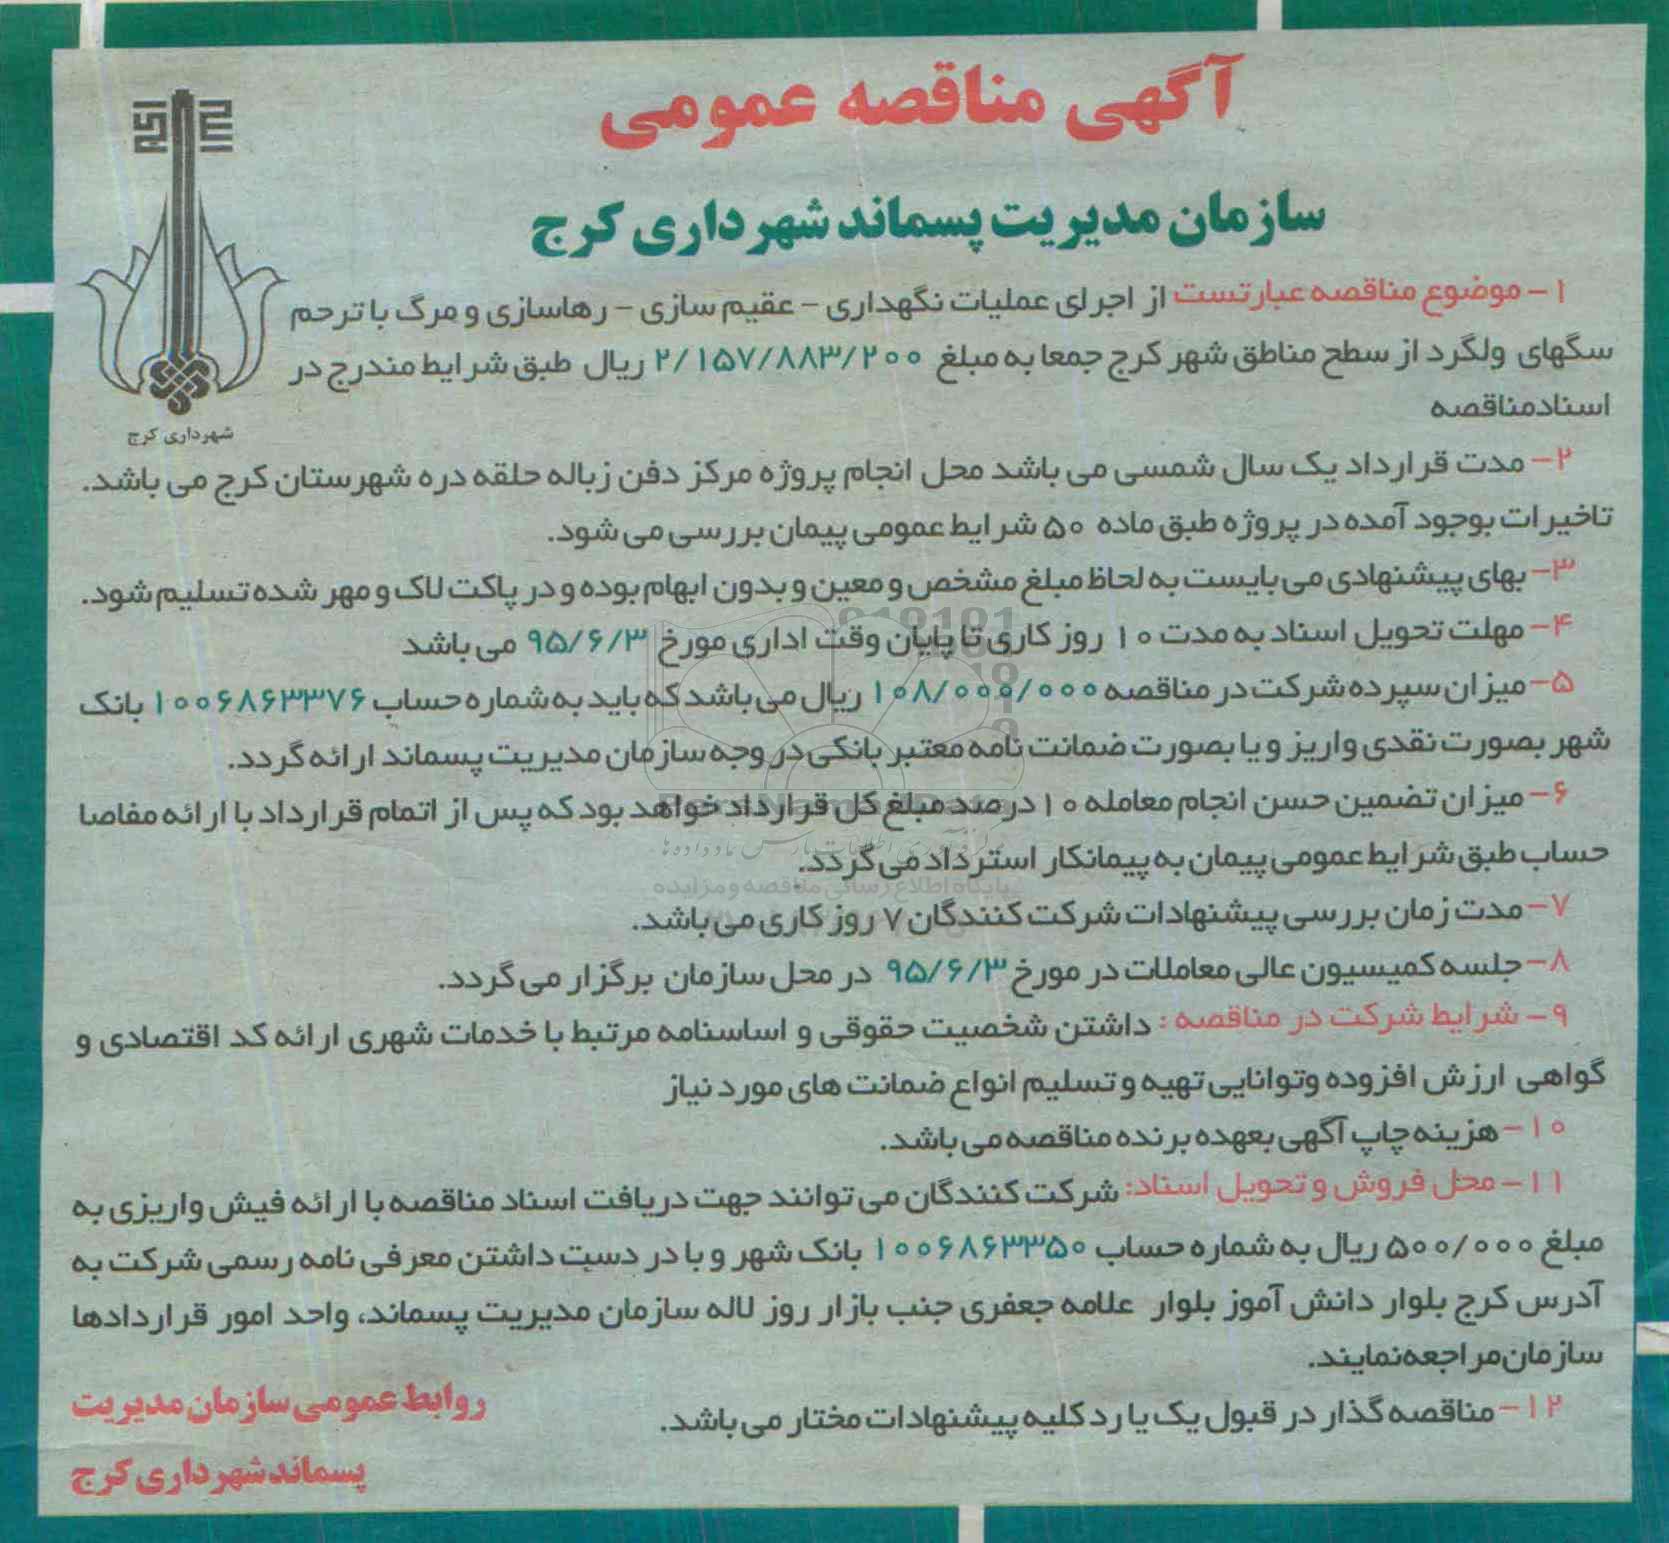 آگهی مناقصه عمومی
سازمان مدیریت پسماند شهرداری کرج
شهرداری کرج
۱- موضوع مناقصه عبارتست از اجرای عملیات نگهداری - عقیم سازی - رهاسازی و مرگ با ترحم
سگهای ولگرد از سطح مناطق شهر کرج جمعا به مبلغ ۲/۱۵۷/۸۸۳/۲۰۰ ریال طبق شرایط مندرج در
اسناد مناقصه
۲- مدت قرارداد یک سال شمسی می باشد محل انجام پروژه مرکز دفن زباله حلقه دره شهرستان کرج می باشد.
تاخیرات بوجود آمده در پروژه طبق ماده ۵۰ شرایط عمومی پیمان بررسی می شود.
۳- بهای پیشنهادی می بایست به لحاظ مبلغ مشخص و معین و بدون ابهام بوده و در پاکت لاک و مهر شده تسلیم شود.
۴- مهلت تحویل اسناد به مدت ۱۰ روز کاری تا پایان وقت اداری مورخ ۹۵/۶/۳ می باشد
۵- میزان سپرده شرکت در مناقصه ۱۰۸/۰۰۰/۰۰۰ ریال می باشد که باید به شماره حساب ۱۰۰۶۸۶۳۳۷۶ بانک
شهر بصورت نقدی واریز و یا بصورت ضمانت نامه معتبر بانکی در وجه سازمان مدیریت پسماند ارائه گردد.
۶- میزان تضمین حسن انجام معامله ۱۰ درصد مبلغ کل قرارداد خواهد بود که پس از اتمام قرارداد با ارائه مفاصا
حساب طبق شرایط عمومی پیمان به پیمانکار استرداد می گردد.
پایگاه اطلاع رسانی مناقصه و مزایده
۷- مدت زمان بررسی پیشنهادات شرکت کنندگان ۷ روز کاری می باشد.
۸- جلسه کمیسیون عالی معاملات در مورخ ۹۵/۶/۳ در محل سازمان برگزار می گردد.
۹- شرایط شرکت در مناقصه : داشتن شخصیت حقوقی و اساسنامه مرتبط با خدمات شهری ارائه کد اقتصادی و
گواهی ارزش افزوده وتوانایی تهیه و تسلیم انواع ضمانت های مورد نیاز
۱۰- هزینه چاپ آگهی بعهده برنده مناقصه می باشد.
۱۱- محل فروش و تحویل اسناد: شرکت کنندگان می توانند جهت دریافت اسناد مناقصه با ارائه فیش واریزی به
مبلغ ۵۰۰/۰۰۰ ریال به شماره حساب ۱۰۰۶۸۶۳۳۵۰ بانک شهر و با در دست داشتن معرفی نامه رسمی شرکت به
آدرس کرج بلوار دانش آموز بلوار علامه جعفری جنب بازار روز لاله سازمان مدیریت پسماند، واحد امور قراردادها
سازمان مراجعه نمایند.
۱۲- مناقصه گذار در قبول یک یا رد کلیه پیشنهادات مختار می باشد.
روابط عمومی سازمان مدیریت
پسماند شهرداری کرج